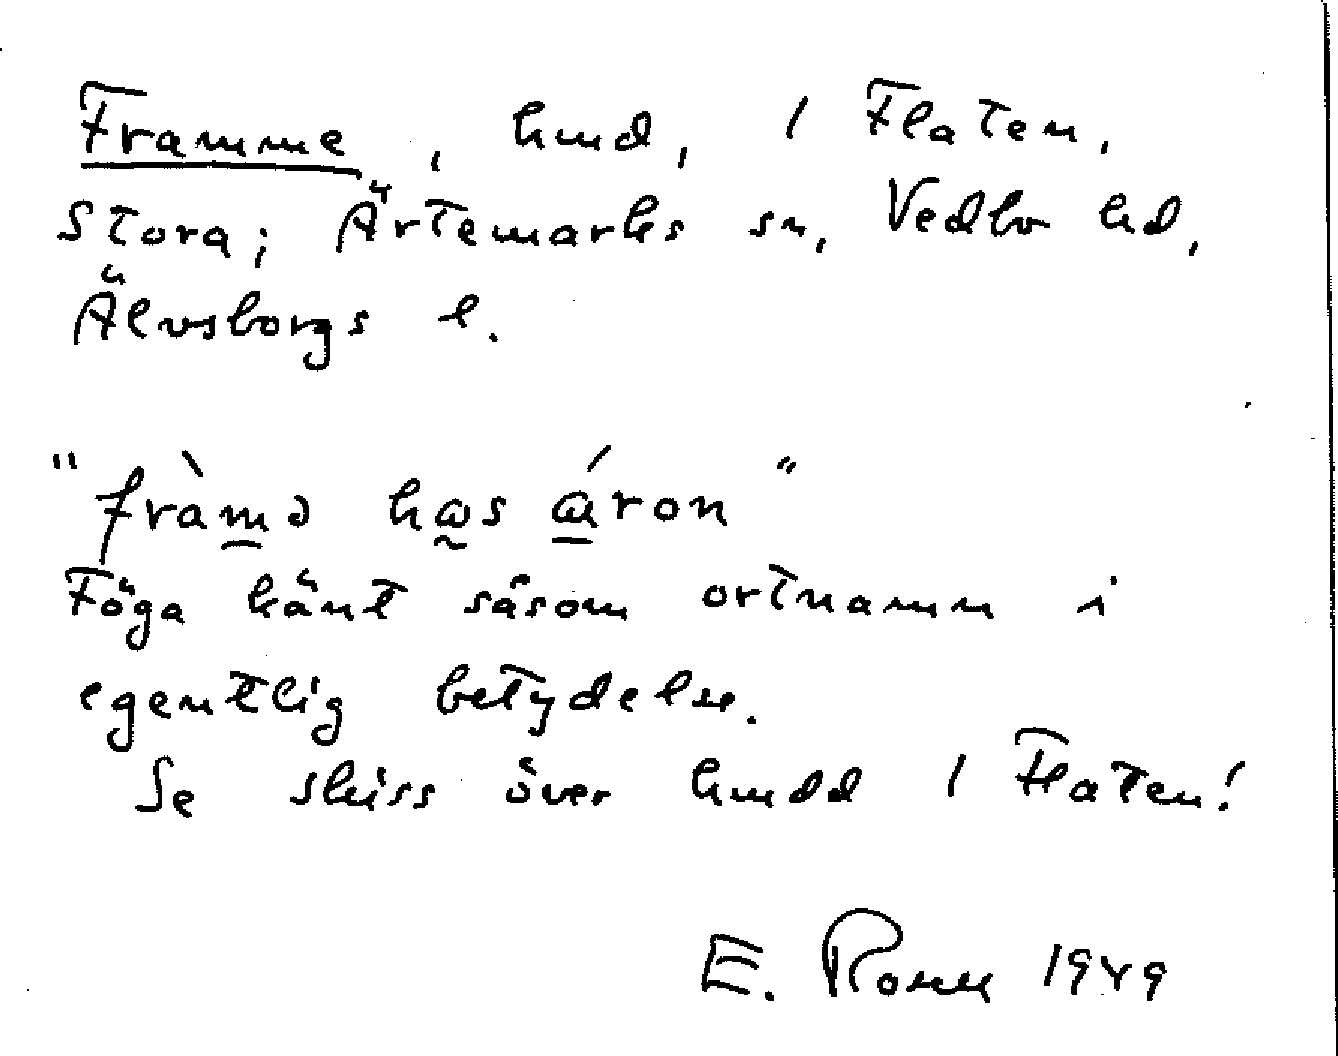 Framme, hmd, 1 Flaten,
Stora; Ärtemarks sn, Vedbo hd,
Älvsborgs l.
"fràmə has áron"
Föga känt såsom ortnamn i
egentlig betydelse.
Se skiss över hmdd 1 Flaten!
E. 1949